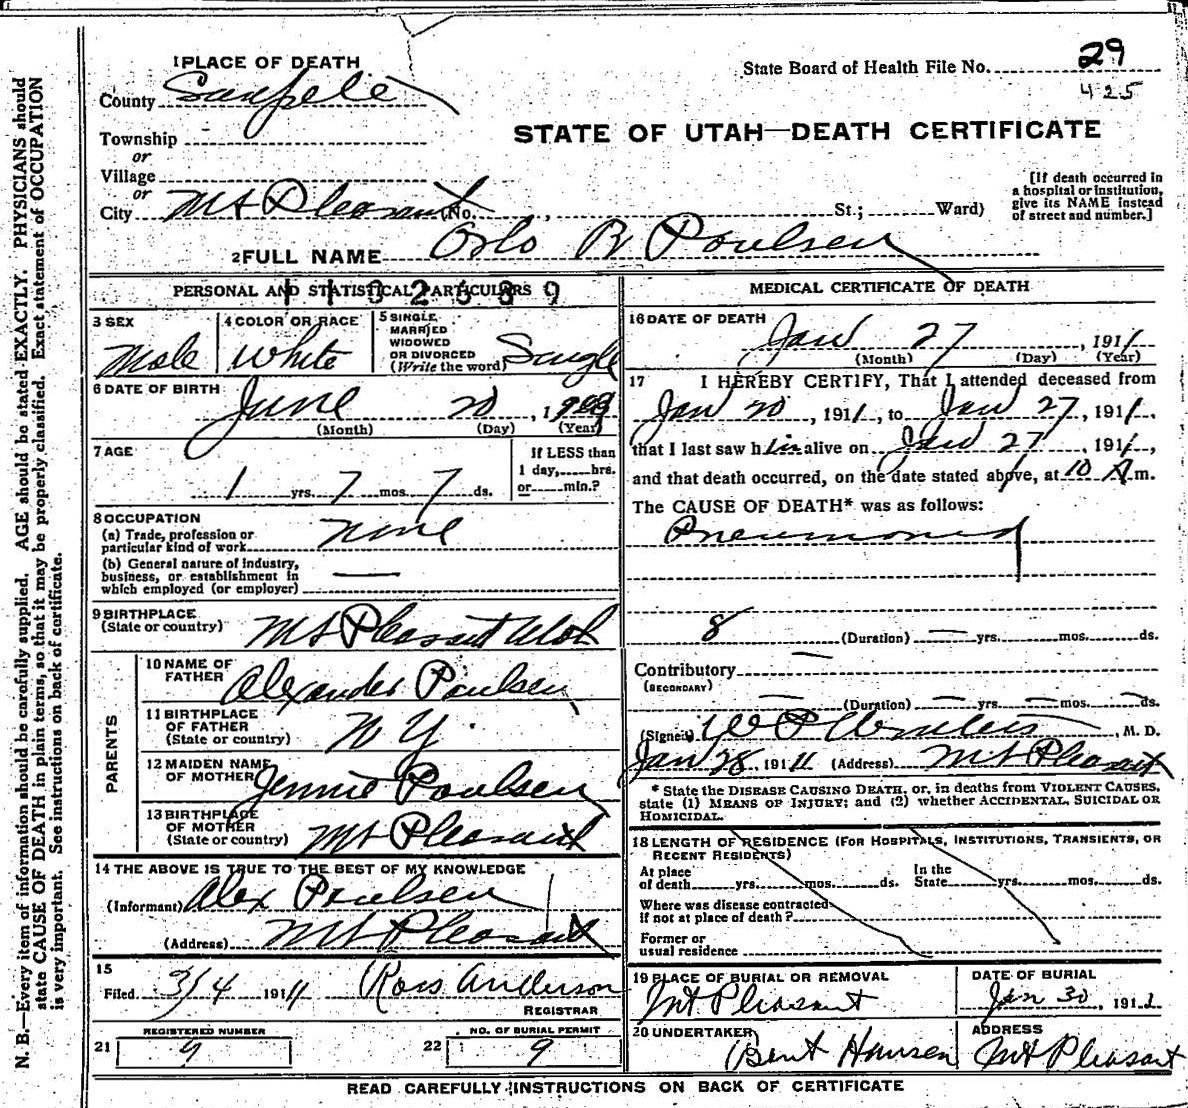 1 PLACE OF DEATH
County Sanpete
State Board of Health File No. 29
425
Township
or
Village
or
City Mt Pleasant (No. , St.; Ward)
STATE OF UTAH—DEATH CERTIFICATE
[If death occurred in
a hospital or institution,
give its NAME instead
of street and number.]
2 FULL NAME Orlo R Poulsen
PERSONAL AND STATISTICAL PARTICULARS
1102689
3 SEX
Male
4 COLOR OR RACE
White
5 SINGLE
MARRIED
WIDOWED
OR DIVORCED
(Write the word) Single
6 DATE OF BIRTH
June 20, 1909
(Month) (Day) (Year)
7 AGE
1 yrs. 7 mos. 7 ds.
If LESS than
1 day, hrs.
or min.?
8 OCCUPATION
(a) Trade, profession or
particular kind of work none
(b) General nature of industry,
business, or establishment in
which employed (or employer) —
9 BIRTHPLACE
(State or country) Mt Pleasant Utah
PARENTS
10 NAME OF
FATHER Alexander Poulsen
11 BIRTHPLACE
OF FATHER
(State or country) N Y.
12 MAIDEN NAME
OF MOTHER Jennie Poulsen
13 BIRTHPLACE
OF MOTHER
(State or country) Mt Pleasant
14 THE ABOVE IS TRUE TO THE BEST OF MY KNOWLEDGE
(Informant) Alex Poulsen
(Address) Mt Pleasant
15
Filed 3/4 1911 Anderson
REGISTRAR
REGISTERED NUMBER
21 9
NO. OF BURIAL PERMIT
22 9
MEDICAL CERTIFICATE OF DEATH
16 DATE OF DEATH
Jan 27, 1911
(Month) (Day) (Year)
17 I HEREBY CERTIFY, That I attended deceased from
Jan 20, 1911, to Jan 27, 1911,
that I last saw him alive on Jan 27, 1911,
and that death occurred, on the date stated above, at 10 A m.
The CAUSE OF DEATH* was as follows:
Pneumonia
8 (Duration) — yrs. mos. ds.
Contributory —
(SECONDARY)
— (Duration) — yrs. — mos. — ds.
(Signed) W P , M. D.
Jan 28, 1911 (Address) Mt Pleasant
* State the DISEASE CAUSING DEATH, or, in deaths from VIOLENT CAUSES,
state (1) MEANS OF INJURY; and (2) whether ACCIDENTAL, SUICIDAL OR
HOMICIDAL.
18 LENGTH OF RESIDENCE (FOR HOSPITALS, INSTITUTIONS, TRANSIENTS, OR
RECENT RESIDENTS)
At place
of death yrs. mos. ds.
In the
State yrs. mos. ds.
Where was disease contracted
if not at place of death?
Former or
usual residence
19 PLACE OF BURIAL OR REMOVAL
Mt Pleasant
DATE OF BURIAL
Jan 30, 1911
20 UNDERTAKER
Bent Hansen
ADDRESS
Mt Pleasant
READ CAREFULLY INSTRUCTIONS ON BACK OF CERTIFICATE
N. B.—Every item of information should be carefully supplied. AGE should be stated EXACTLY. PHYSICIANS should
state CAUSE OF DEATH in plain terms, so that it may be properly classified. Exact statement of OCCUPATION
is very important. See instructions on back of certificate.